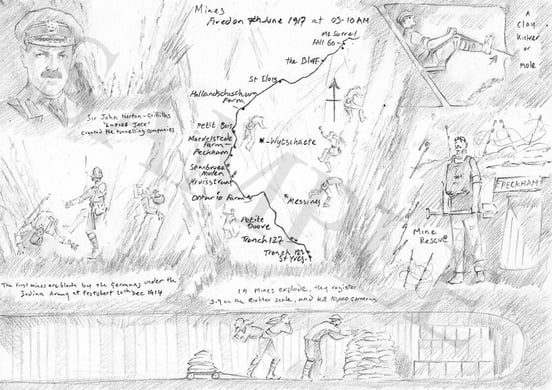 Mines
Fired on 7th June 1917 at 03-10 AM
Mt Sorrel
Hill 60
The Bluff
St Eloi
Hollandscheschuur
Farm
Petit Bois
Maedelstede
Farm
Peckham
Wytschaete
Spanbroek
Molen
Kruisstraat
Ontario Farm
Messines
Petite
Douve
Trench 127
Trench 122
St Yves
A
Clay
Kicker
or
Mole
Sir John Norton-Griffiths
'EMPIRE JACK'
Created the tunnelling companies
PECKHAM
Mine
Rescue
The first mines are blown by the Germans under the
Indian Army at Festubert 20th Dec 1914
19 Mines explode, they register
3.9 on the Richter scale, and kill 10,000 Germans